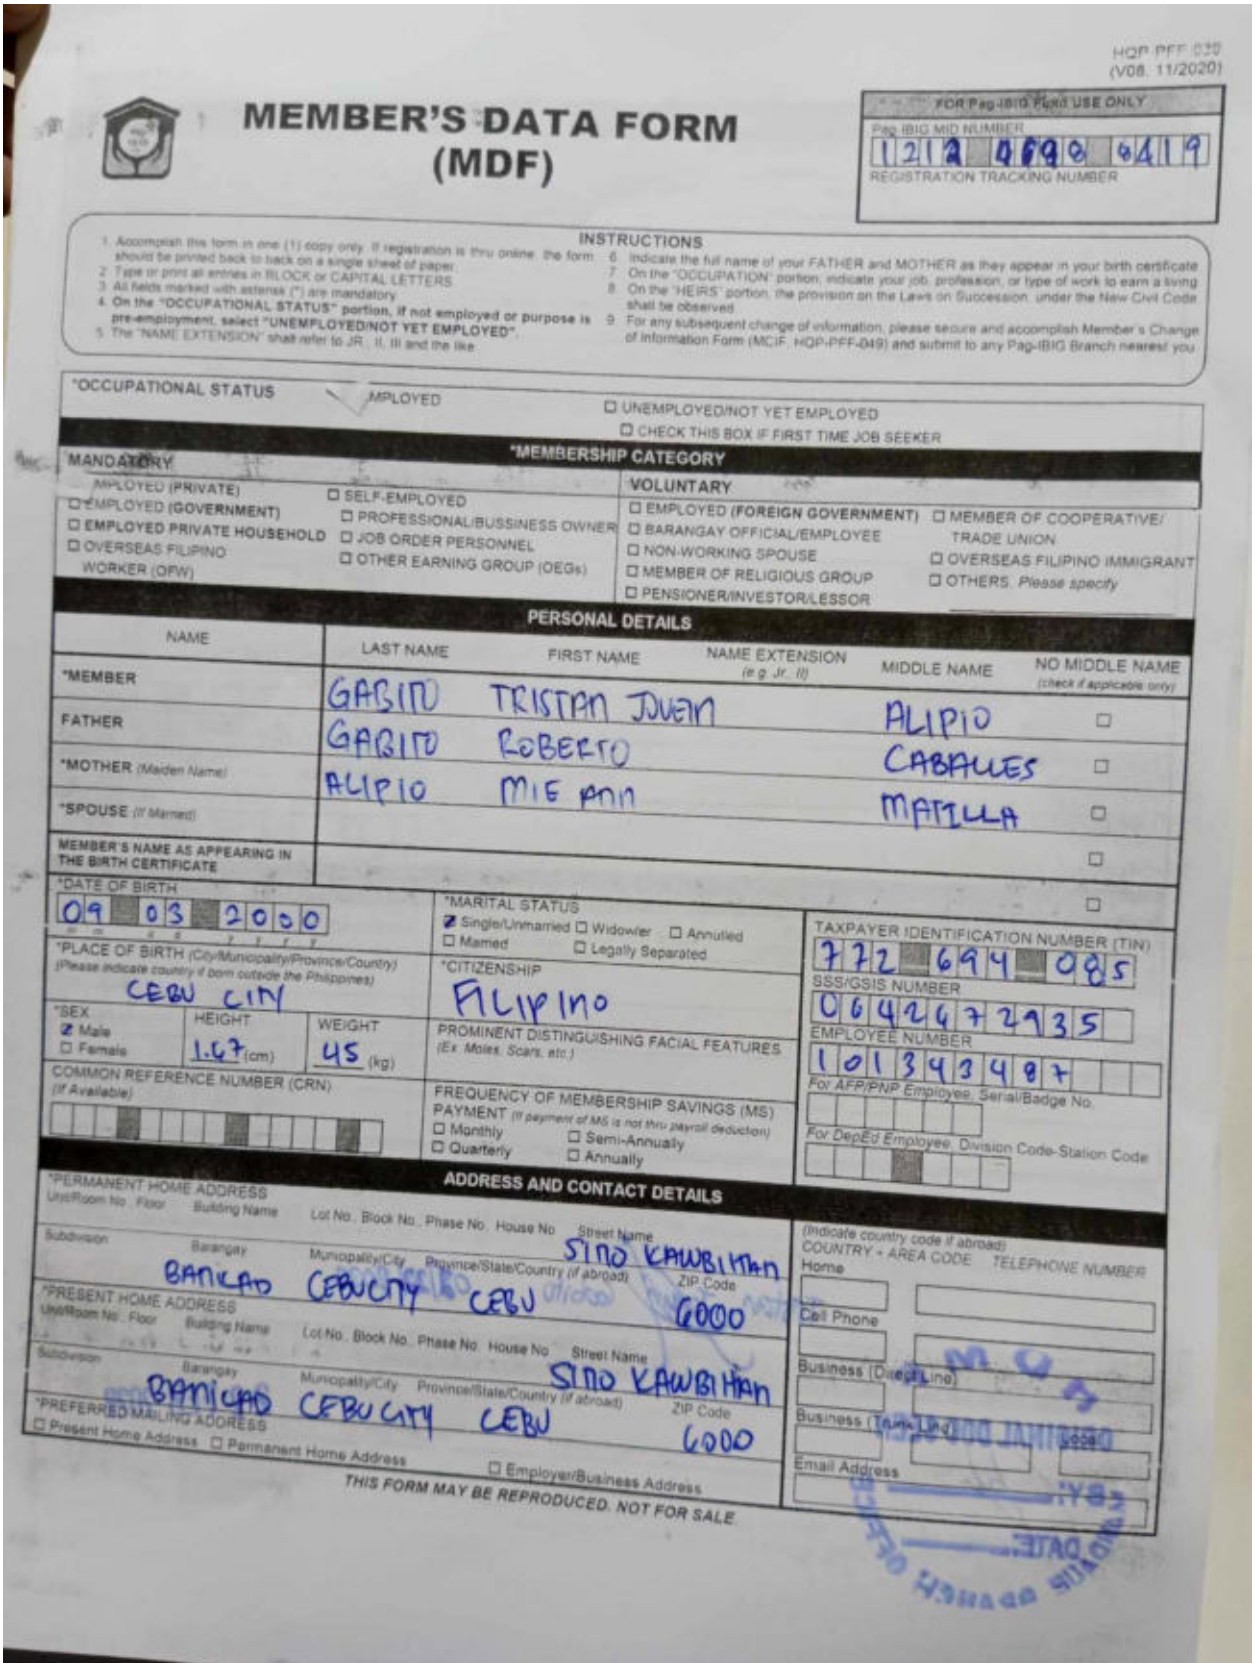 HQP-PFF-039
(V08, 11/2020)
MEMBER'S DATA FORM
(MDF)
FOR Pag-IBIG Fund USE ONLY
Pag-IBIG MID NUMBER
1212 8419
REGISTRATION TRACKING NUMBER
INSTRUCTIONS
1. Accomplish this form in one (1) copy only. If registration is thru online, the form
should be printed back to back on a single sheet of paper.
2. Type or print all entries in BLOCK or CAPITAL LETTERS
3. All fields marked with asterisk (*) are mandatory
4. On the "OCCUPATIONAL STATUS" portion, if not employed or purpose is
pre-employment, select "UNEMPLOYED/NOT YET EMPLOYED".
5. The "NAME EXTENSION" shall refer to JR., II, III and the like
6. Indicate the full name of your FATHER and MOTHER as they appear in your birth certificate
7. On the "OCCUPATION" portion, indicate your job, profession, or type of work to earn a living
8. On the "HEIRS" portion, the provision on the Laws on Succession, under the New Civil Code
shall be observed
9. For any subsequent change of information, please secure and accomplish Member's Change
of Information Form (MCIF, HQP-PFF-049) and submit to any Pag-IBIG Branch nearest you
*OCCUPATIONAL STATUS MPLOYED ☐ UNEMPLOYED/NOT YET EMPLOYED
☐ CHECK THIS BOX IF FIRST TIME JOB SEEKER
*MEMBERSHIP CATEGORY
MANDATORY
MPLOYED (PRIVATE)
☐ EMPLOYED (GOVERNMENT)
☐ EMPLOYED PRIVATE HOUSEHOLD
☐ OVERSEAS FILIPINO
WORKER (OFW)
☐ SELF-EMPLOYED
☐ PROFESSIONAL/BUSSINESS OWNER
☐ JOB ORDER PERSONNEL
☐ OTHER EARNING GROUP (OEGs)
VOLUNTARY
☐ EMPLOYED (FOREIGN GOVERNMENT)
☐ BARANGAY OFFICIAL/EMPLOYEE
☐ NON-WORKING SPOUSE
☐ MEMBER OF RELIGIOUS GROUP
☐ PENSIONER/INVESTOR/LESSOR
☐ MEMBER OF COOPERATIVE/
TRADE UNION
☐ OVERSEAS FILIPINO IMMIGRANT
☐ OTHERS, Please specify
PERSONAL DETAILS
NAME LAST NAME FIRST NAME NAME EXTENSION MIDDLE NAME NO MIDDLE NAME
(e.g. Jr., II) (check if applicable only)
*MEMBER GABITO TRISTAN JOVEIN ALIPIO ☐
FATHER GABITO ROBERTO CABALLES ☐
*MOTHER (Maiden Name) ALIPIO MIE ANN MATILLA ☐
*SPOUSE (If Married) ☐
MEMBER'S NAME AS APPEARING IN
THE BIRTH CERTIFICATE ☐
*DATE OF BIRTH
09 03 2000
m m d d y y y y
*PLACE OF BIRTH (City/Municipality/Province/Country)
(Please indicate country if born outside the Philippines)
CEBU CITY
*SEX
☑ Male
☐ Female
HEIGHT
1.67 (cm)
WEIGHT
45 (kg)
COMMON REFERENCE NUMBER (CRN)
(If Available)
*MARITAL STATUS
☑ Single/Unmarried ☐ Widow/er ☐ Annulled
☐ Married ☐ Legally Separated
*CITIZENSHIP
FILIPINO
PROMINENT DISTINGUISHING FACIAL FEATURES
(Ex. Moles, Scars, etc.)
FREQUENCY OF MEMBERSHIP SAVINGS (MS)
PAYMENT (If payment of MS is not thru payroll deduction)
☐ Monthly ☐ Semi-Annually
☐ Quarterly ☐ Annually
TAXPAYER IDENTIFICATION NUMBER (TIN)
772 694 085
SSS/GSIS NUMBER
0642672935
EMPLOYEE NUMBER
101343487
For AFP/PNP Employee, Serial/Badge No.
For DepEd Employee, Division Code-Station Code
ADDRESS AND CONTACT DETAILS
*PERMANENT HOME ADDRESS
Unit/Room No., Floor Building Name Lot No., Block No., Phase No. House No Street Name
SITIO KAWBIHAN
Subdivision Barangay Municipality/City Province/State/Country (if abroad) ZIP Code
BANILAD CEBU CITY CEBU 6000
*PRESENT HOME ADDRESS
Unit/Room No., Floor Building Name Lot No., Block No., Phase No. House No Street Name
SITIO KAWBIHAN
Subdivision Barangay Municipality/City Province/State/Country (if abroad) ZIP Code
BANILAD CEBU CITY CEBU 6000
*PREFERRED MAILING ADDRESS
☐ Present Home Address ☐ Permanent Home Address ☐ Employer/Business Address
(Indicate country code if abroad)
COUNTRY + AREA CODE TELEPHONE NUMBER
Home
Cell Phone
Business (Direct Line)
Business (Trunk Line) Local
Email Address
THIS FORM MAY BE REPRODUCED. NOT FOR SALE.
BY:
DATE: